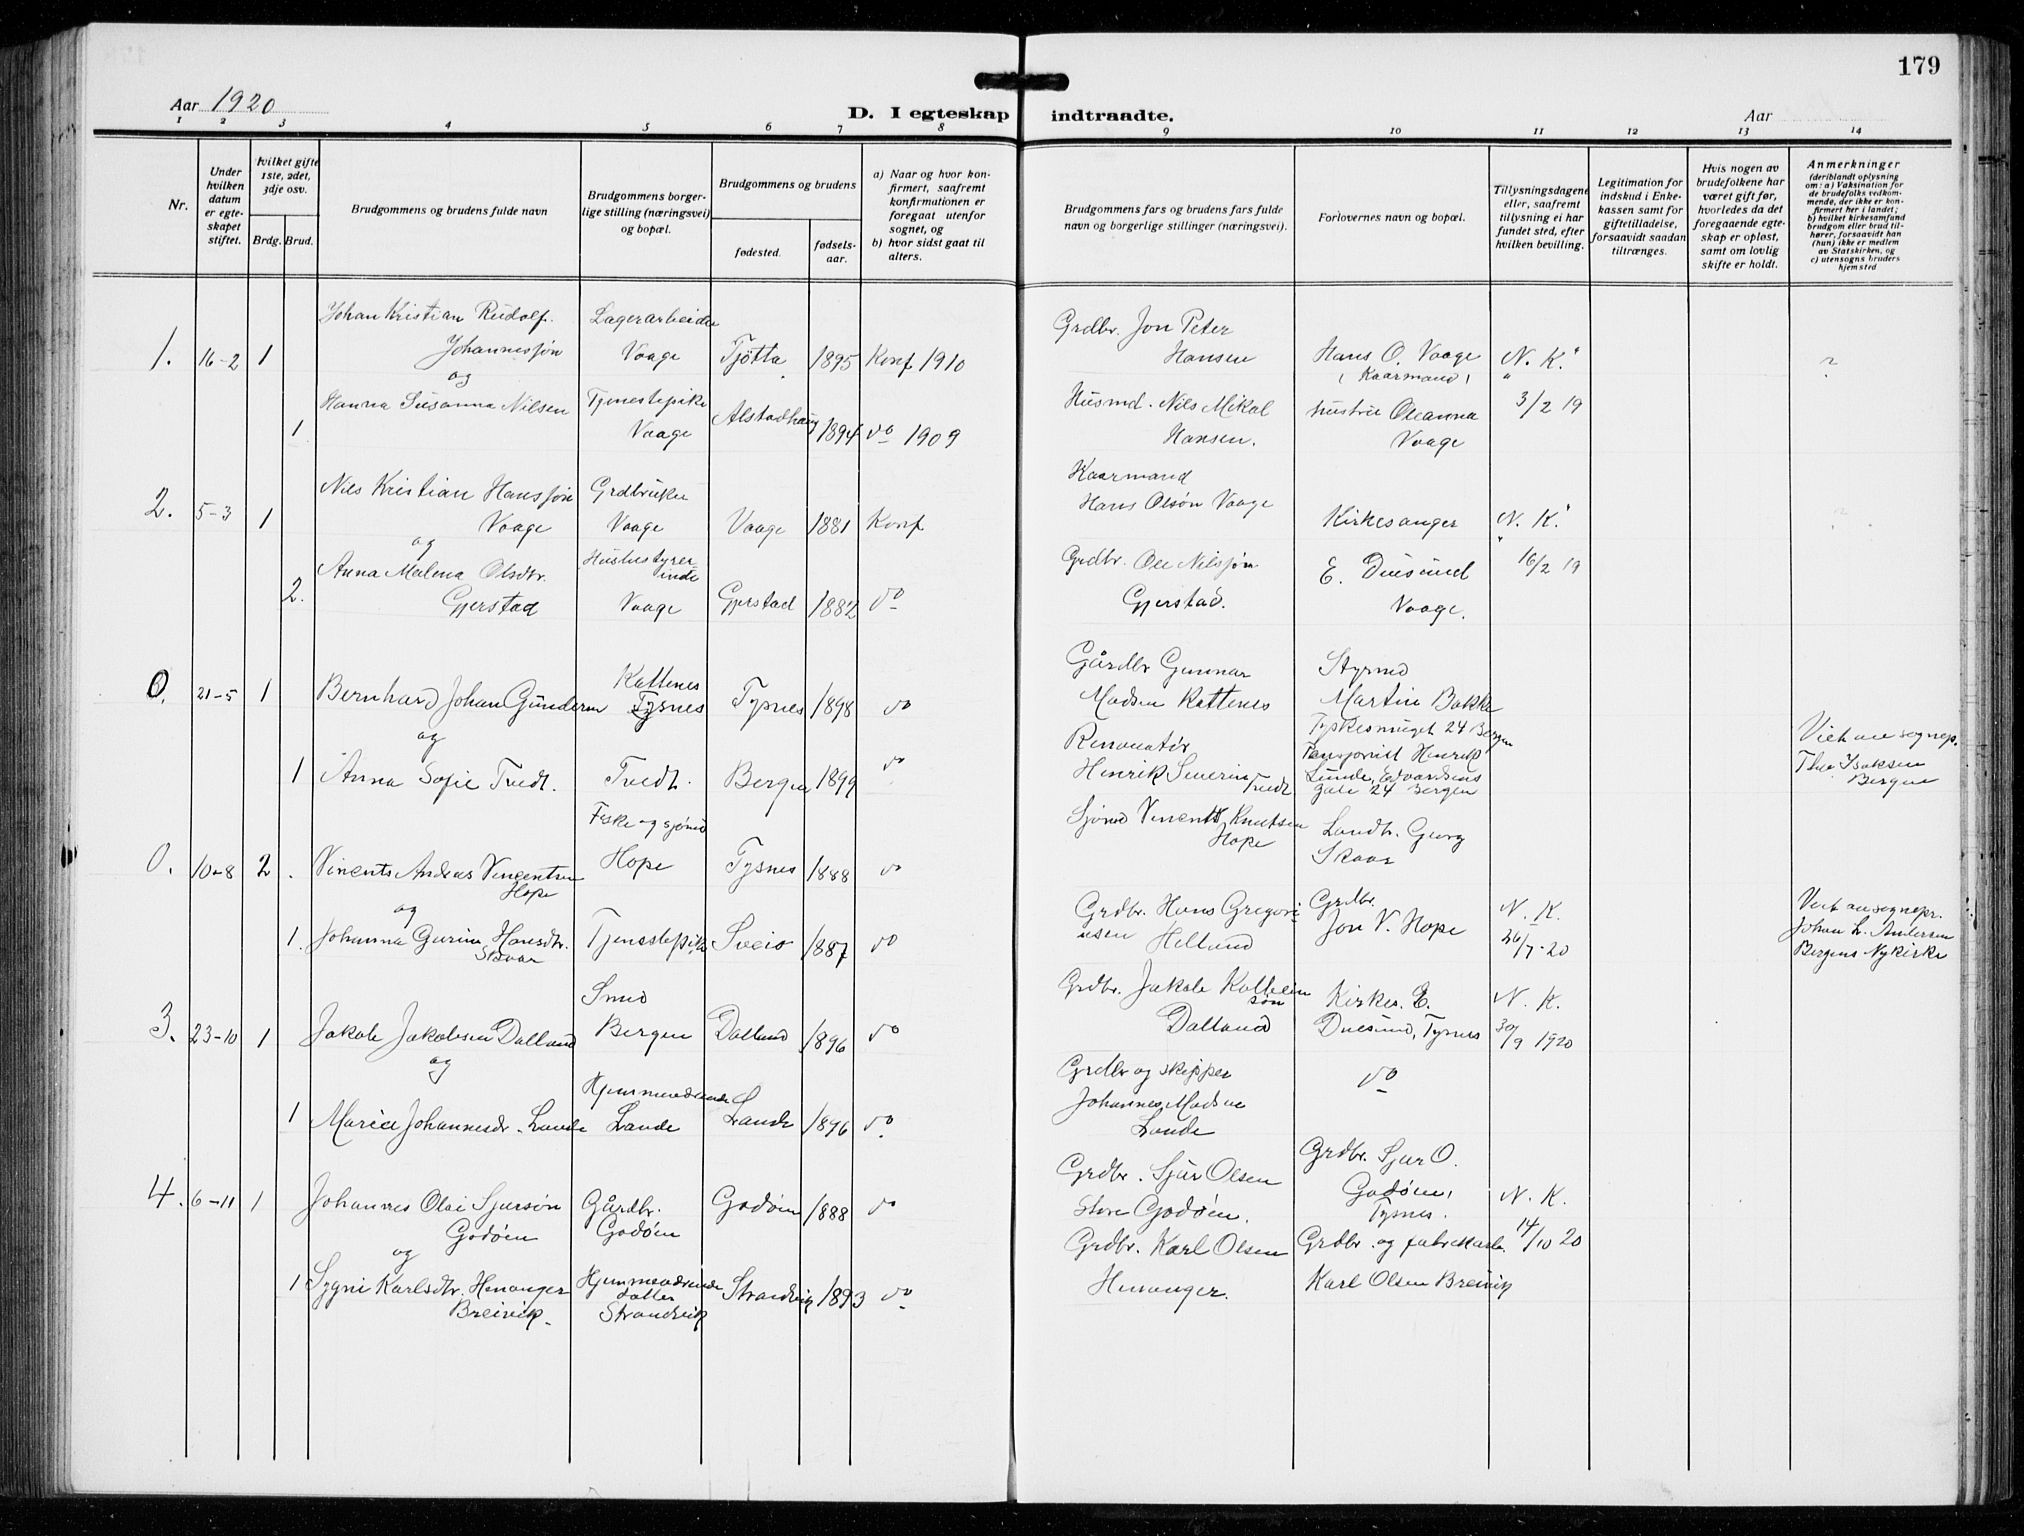 179
Aar 1920
D. I egteskap indtraadte.
Aar
1 2 3 4 5 6 7 8 9 10 11 12 13 14
Nr.
Under hvilken datum er egteskapet stiftet.
Hvilket gifte 1ste, 2det, 3dje osv.
Brdg. Brud.
Brudgommens og brudens fulde navn
Brudgommens borgerlige stilling (næringsvei) og bopæl.
Brudgommens og brudens
fødested.
fødselsaar.
a) Naar og hvor konfirmert, saafremt konfirmationen er foregaat utenfor sognet, og
b) hvor sidst gaat til alters.
Brudgommens fars og brudens fars fulde navn og borgerlige stillinger (næringsvei).
Forlovernes navn og bopæl.
Tillysningsdagene eller, saafremt tillysning ei har fundet sted, efter hvilken bevilling.
Legitimation for indskud i Enkekassen samt for giftetilladelse, forsaavidt saadan tiltrænges.
Hvis nogen av brudefolkene har været gift før, hvorledes da det foregaaende egteskap er opløst, samt om lovlig skifte er holdt.
Anmerkninger
(deriblandt oplysning om: a) Vaksination for de brudefolks vedkommende, der ikke er konfirmert her i landet;
b) hvilket kirkesamfund brudgom eller brud tilhører, forsaavidt han (hun) ikke er medlem av Statskirken, og
c) utensogns bruders hjemsted
1. 16-2 1 Johan Kristian Rudolf Johannesjøn
Lagerarbeider Vaage Tjøtta 1895 Konf 1910
Grdbr. Jon Peter Hansen
Hans O. Vaage (Kaarmand)
N. K.
?
og
1 Hanna Susanna Nilsen
Tjenestepike Vaage Alstadhaug 1894 do 1909
Husmd. Nils Mikal Hansen.
hustru Oleanna Vaage
3/2 19
2. 5-3 1 Nils Kristian Hansjøn Vaage
Grdbruker Vaage Vaage 1881 Konf
Kaarmand Hans Olsøn Vaage
Kirkesanger
N. K.
og
2. Anna Malena Olsdtr. Gjerstad
Husbestyrerinde Vaage Gjerstad 1882 do
Grdbr. Ole Nilsjøn Gjerstad.
E. Duesund Vaage.
16/2 19
0. 21-5 1 Bernhard Johan Gundersen
Kattenes Tysnes Tysnes 1898 do
Gårdbr Gunnar Madsen Kattenes
Styrmd Martin Bakke
24 Bergen
og
1 Anna Sofie Tvedt.
Tvedt. Bergen 1899 do
Renovatør Henrik Severin Tvedt
Henrik Lunde, Edvardsens gate 24 Bergen
Viet av sognep. Thv Isaksen Bergen
0. 10-8 2 Vincents Andreas Vincentsen Hope
Fiske og sjømd Hope Tysnes 1888 do
Sjømd Vincents Knutsen Hope
Landh. Georg Skaar
og
1. Johanna Gurina Hansdtr. Skaar
Tjenestepike Sveio 1887 do
Grdbr. Hans Gregoriusen Helland
Grdbr. Jon V. Hope
N. K. 26/7-20
Viet av sognepr. Johan L. Andersen Bergens Nykirke
3. 23-10 1 Jakob Jakobsen Dalland
Smed Bergen Dalland 1896 do
Grdbr. Jakob Kolbeinsøn Dalland
Kirkes. E. Duesund, Tysnes
N. K. 30/9 1920
og
1 Marie Johannesdr. Lande
Hjemmeværende Lande Lande 1896 do.
Grdbr og skipper Johannes Madsen Lande
do
4. 6-11 1 Johannes Olai Sjursøn Godøen
Gårdbr. Godøen Godøen 1888 do
Grdbr. Sjur Olsen Store Godøen.
Grdbr. Sjur O. Godøen, Tysnes.
N. K.
og
1 Sygni Karlsdtr. Henanger Breivik.
Hjemmeværende datter Strandvik Strandvik 1893 do
Grdbr. Karl Olsen Henanger.
Grdbr. og fabrikkarb. Karl Olsen Breivik
14/10 20